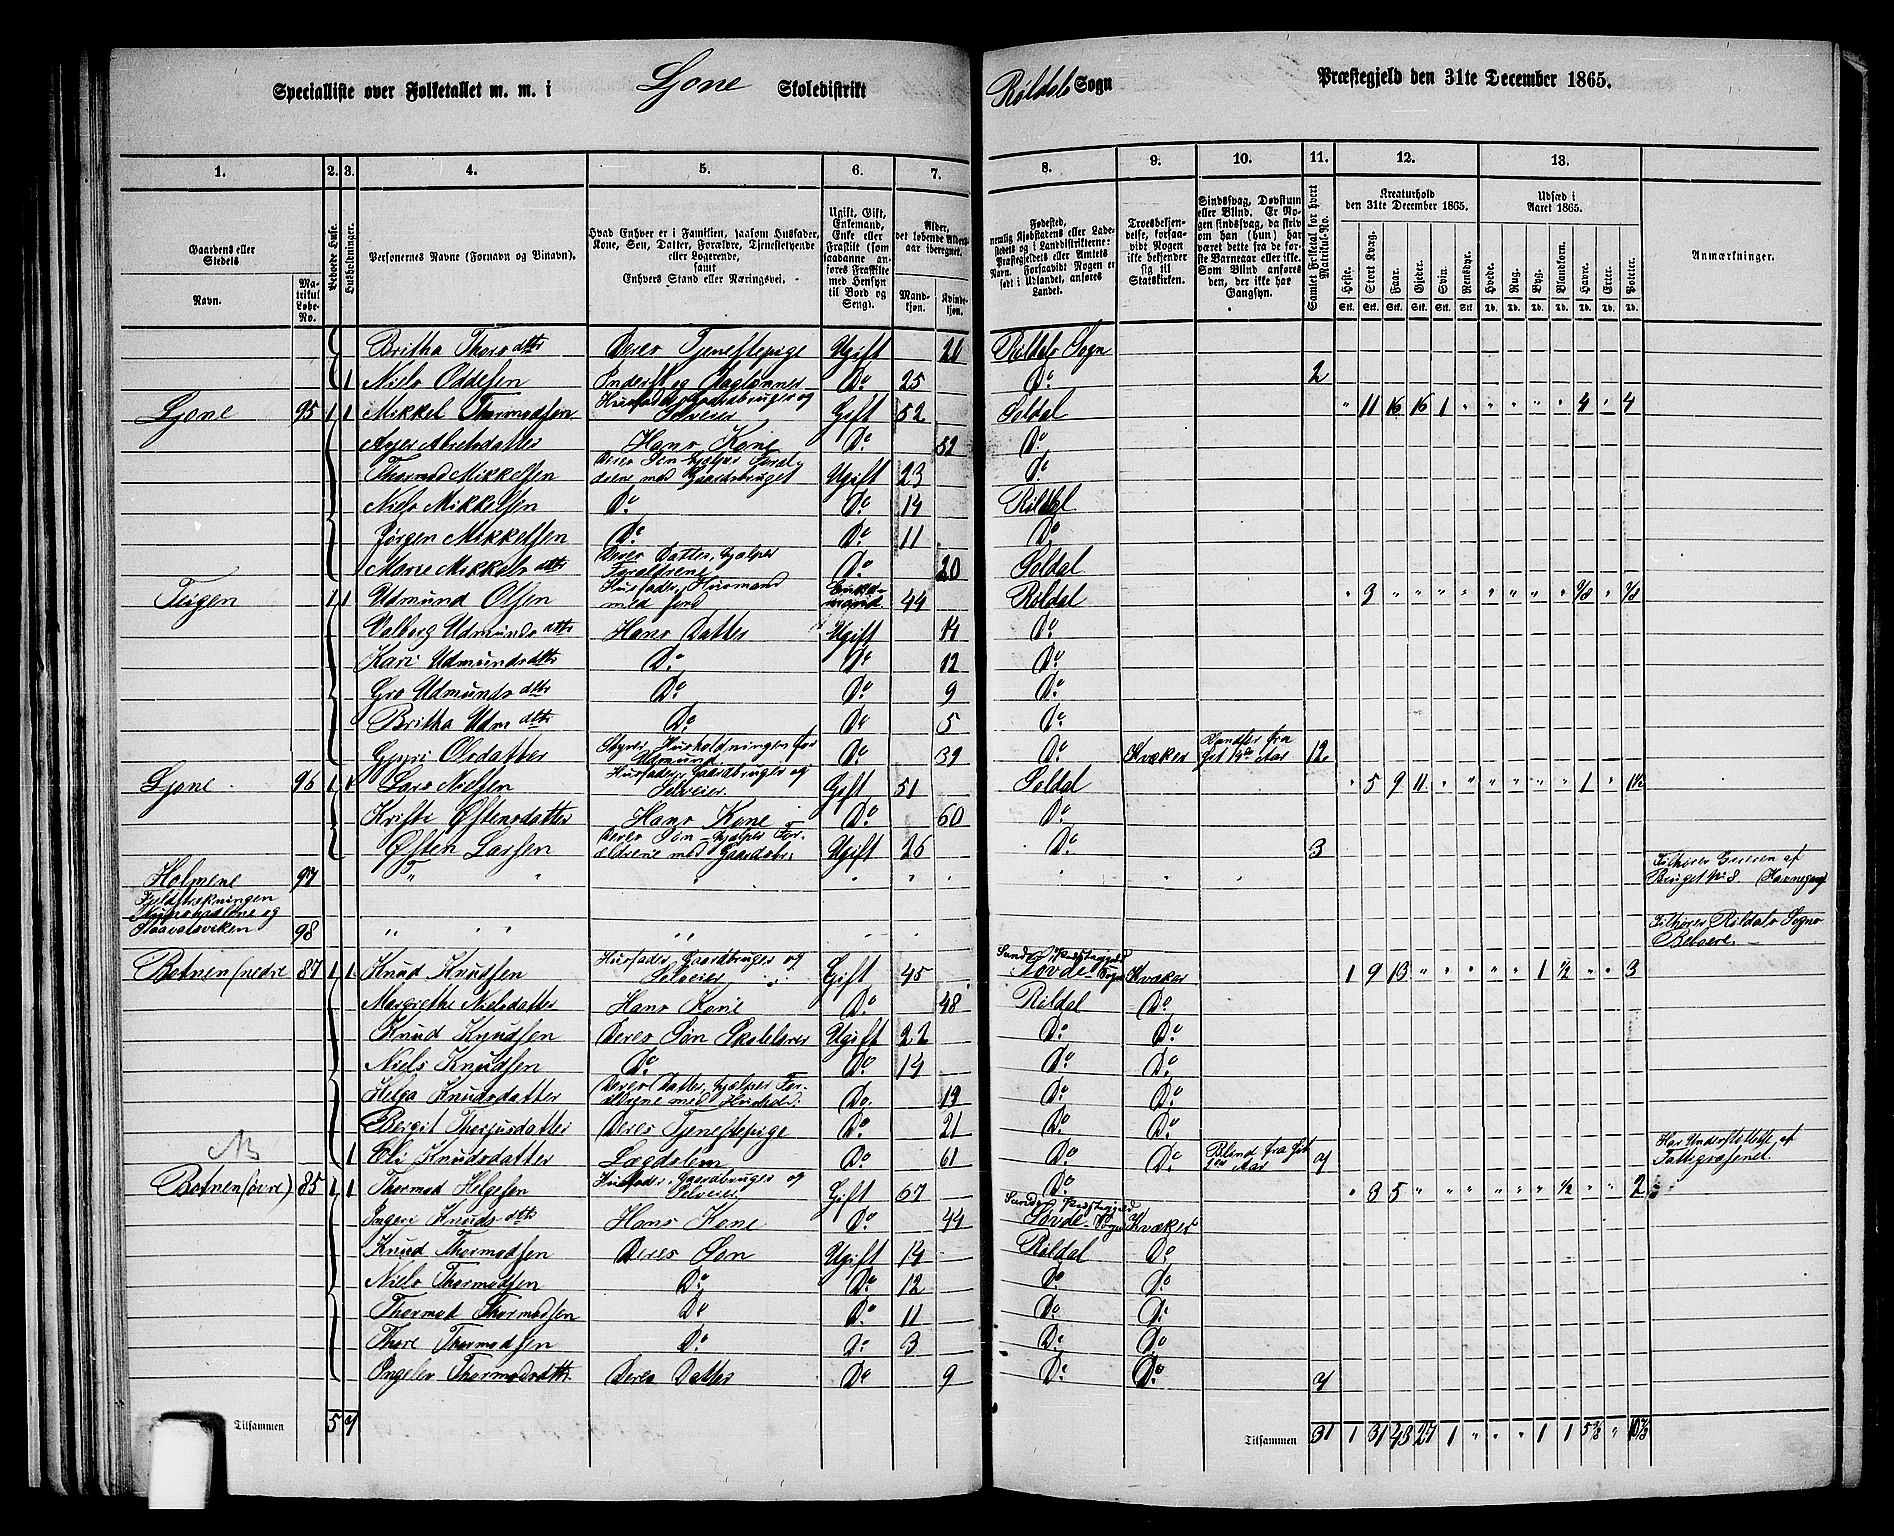 Specialliste over Folketallet m. m. i Ljone Skoledistrikt
Røldals Sogn Præstegjeld den 31te December 1865.
1. 2. 3. 4. 5. 6. 7. 8. 9. 10. 11. 12. 13.
Gaardens eller Stedets
Navn.
Matrikul Løbe-No.
Beboede Huse.
Husholdninger.
Personernes Navne (Fornavn og Tilnavn).
Hvad Enhver er i Familien, saasom Husfader, Kone, Søn, Datter, Forældre, Tjenestetyende eller Logerende, samt Enhvers Stand eller Næringsvei.
Ugift, Gift, Enkemand, Enke eller Fraskilt (saaadanne anføres Fraskilte med Hensyn til Bord og Seng).
Alder, det løbende Alders-aar iberegnet.
Mandkjøn. Kvindekjøn.
Anmærkninger.
Kreaturhold den 31te December 1865.
Udsæd i Aaret 1865.
Samlet Folketal for hvert Matrikul-No.
Heste. Stort Kvæg. Faar. Gjeder. Svin. Rensdyr. Hvede. Rug. Byg. Blandkorn. Havre. Erter. Poteter.
Britha Thorsdttr Deres Tjenestepige Ugift 21 Røldals Sogn
1 Niels Oddesen Inderst og Daglønner Do 25 Do 2
Ljone 95 1 1 Mikkel Thormodsen Husfader Gaardbruger og Selveier Gift 52 Soldal " 11 16 16 1 " " " " " 4 " 4
Hans Kone Do 52 Do
Thormod Mikkelsen Deres Søn hjælper Forældrene med Gaardsbruget Ugift 23 Do
Niels Mikkelsen Do Do 14 Røldal
Jørgen Mikkelsen Do Do 11 Do
Marie Mikkelsdttr Deres Datter, hjælper Forældrene Do 20 Soldal
Teigen 1 1 Udmund Olsen Husfader, Husmand med Jord Enkemand 44 Røldal
Valborg Udmundsdttr Hans Datter Ugift 14 Do
Kari Udmundsdttr Do Do 12 Do
Gro Udmundsdttr Do Do 9 Do
Britha Udmdttr Do Do 5 Do
Gyri Olsdatter Styrer Husholdningen for Udmund Do 39 Do Kvæker 12
Ljone 96 1 1 Lars Nielsen Husfader, Gaardbruger og Selveier Gift 51 Soldal " 5 9 11 " " " " " " 1 " 1½
Kristi Østensdatter Hans Kone Do 60 Do
Østen Larsen Deres Søn hjælper Forældrene med Gaardsbr: Ugift 26 Do 3
Holmene 97 Tilhører Eieren af Bruget No 8. (Havnegang
Fjeldstrækningen
98 Tilhører Røldals Sogns Beboere.
Botnen (nedre 87 1 1 Knud Knudsen Husfader, Gaardbruger og Selveier Gift 45 Sands Præstegjeld Sovde Sogn Kvæker 1 9 13 " " " " " 1 ½ " " 3
Margrethe Nielsdatter Hans Kone Do 48 Røldal Do
Knud Knudsen Deres Søn Skolelærer Ugift 22 Do Do
Niels Knudsen Do Do 14 Do Do
Helga Knudsdatter Deres Datter, hjælper Forældrene med Husholdn: Do. 19 Do Do
Bergit Thorgusdatter Deres Tjenestepige Do 21 Do Do
1 Eli Knudsdatter Lægdslem Do 61 Do Do Blind fra sit 1ste Aar 7 Har Understøttelse af Fattigvæsenet
Botnen (øvre) 85 1 1 Thormod Helgesen Husfader, Gaardbruger og Selveier Gift 67 Do " 3 5 " " " " " " ½ " " 2
Ingeri Knudsdttr Hans Kone Do 44 Sands Præstegjeld Sovde Sogn Kvæker
Knud Thormodsen Deres Søn Ugift 14 Røldal Do
Niels Thormodsen Do Do 12 Do Do
Thormod Thormodsen Do Do 11 Do Do
Thore Thormodsen Do Do 3 Do Do
Ingelev Thormodsdttr Deres Datter Do 9 Do Do 7
Tilsammen 5 7
Tilsammen 31 1 31 43 27 1 " " " 1 1